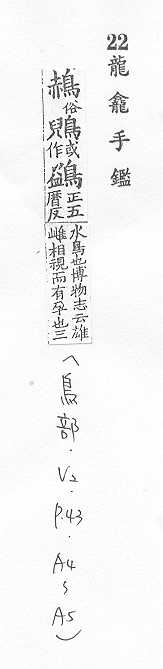 22龍龕手鑑
俗鶂或作鷁正五曆反
水鳥也博物志云雄
雌相視而有孕也三
(鳥部．V2．P.43．A4~A5)